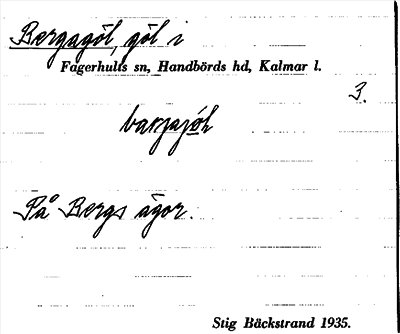 Bergagöl, göl i
Fagerhults sn, Handbörds hd, Kalmar l.
3.
På Bergs ägor.
Stig Bäckstrand 1935.